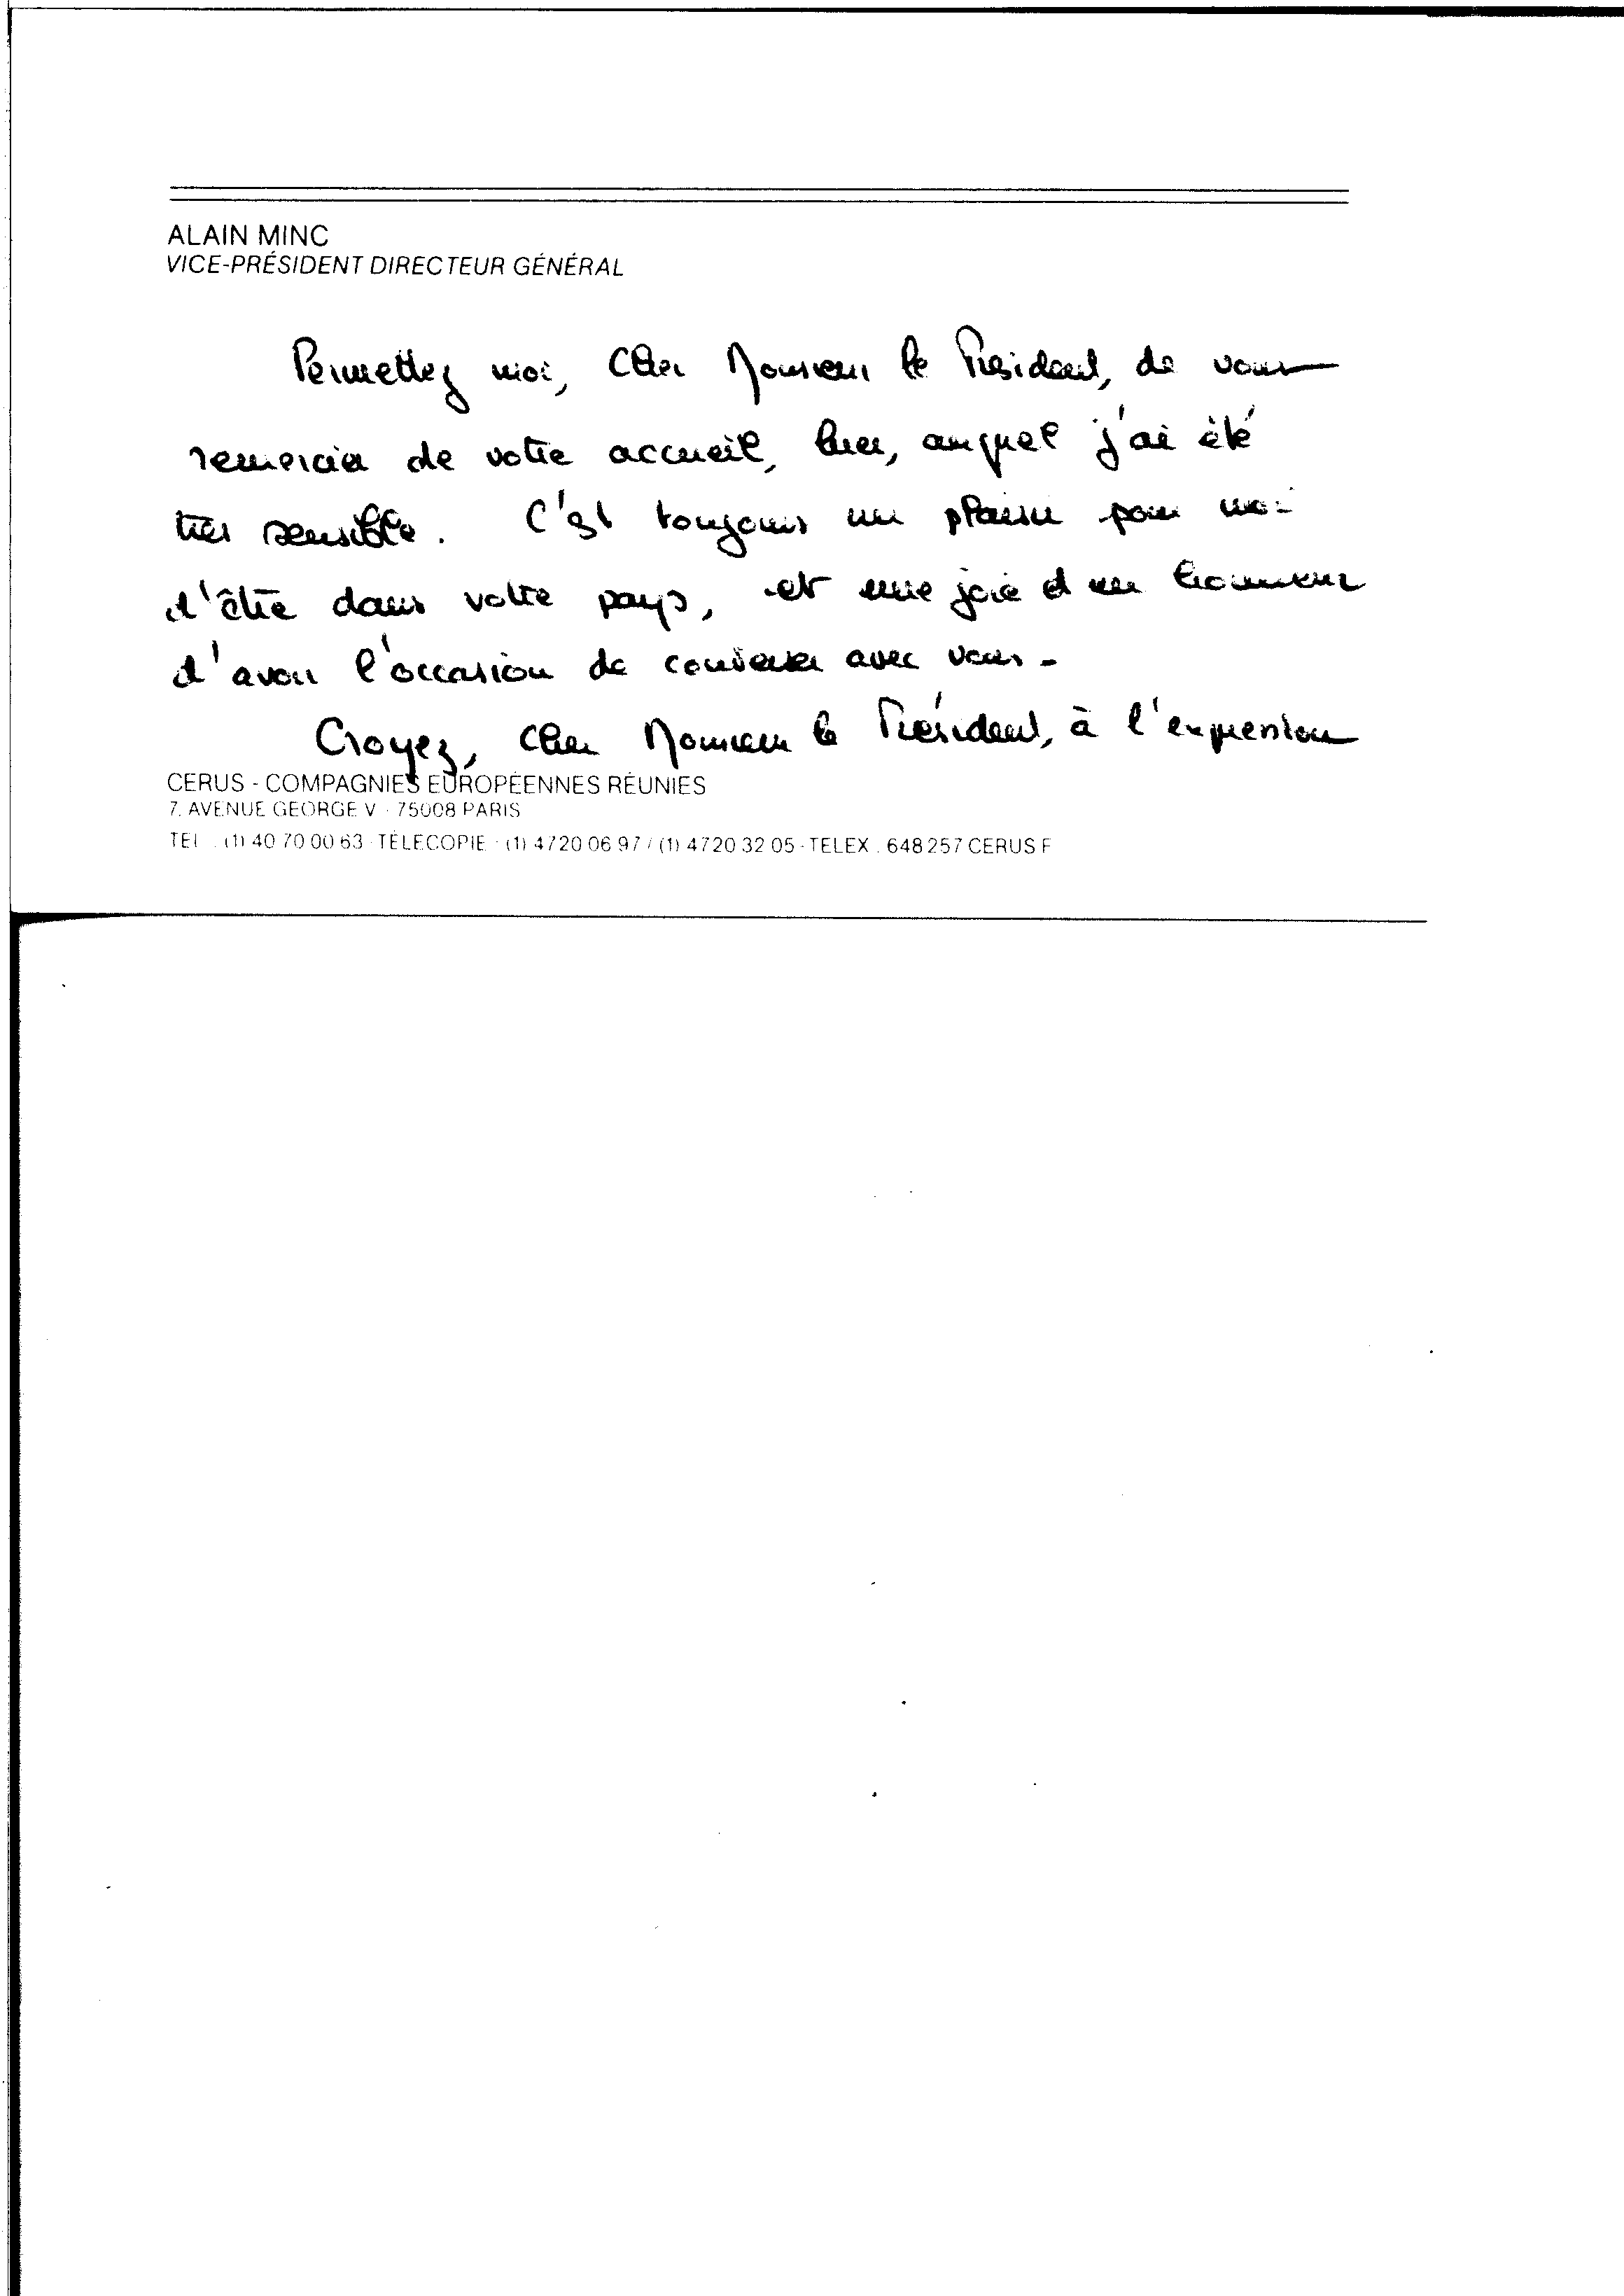 ALAIN MINC
VICE-PRÉSIDENT DIRECTEUR GÉNÉRAL
Permettez moi, Cher Monsieur le Président, de vous
remercier de votre accueil, hier, auquel j'ai été
très sensible. C'est toujours un plaisir pour moi
d'être dans votre pays, et une joie et un honneur
d'avoir l'occasion de converser avec vous.
Croyez, Cher Monsieur le Président, à l'expression
CERUS - COMPAGNIES EUROPÉENNES RÉUNIES
7, AVENUE GEORGE V - 75008 PARIS
TEL. : (1) 40 70 00 63 - TÉLÉCOPIE : (1) 47 20 06 97 / (1) 47 20 32 05 - TELEX : 648 257 CERUS F